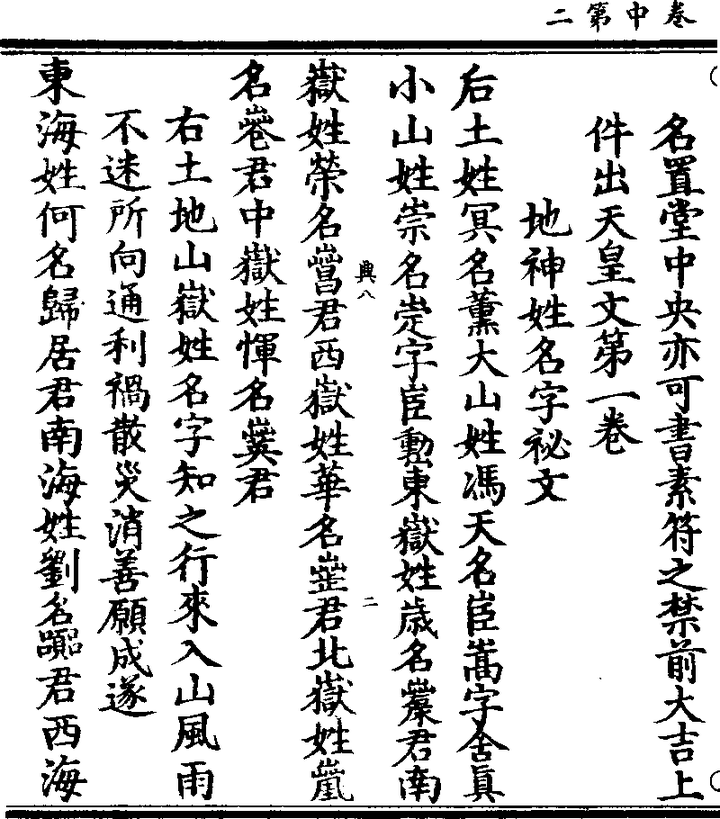 卷中第二
名置堂中央亦可書素符之禁前大吉上
件出天皇文第一卷
地神姓名字祕文
后土姓冥名薰大山姓馮天名嵩字舍眞
小山姓崇名字勳東嶽姓歲名君南
嶽姓榮名君西嶽姓華名君北嶽姓
興八
二
名君中嶽姓惲名君
右土地山嶽姓名字知之行來入山風雨
不迷所向通利禍散災消善願成遂
東海姓何名歸居君南海姓劉名君西海